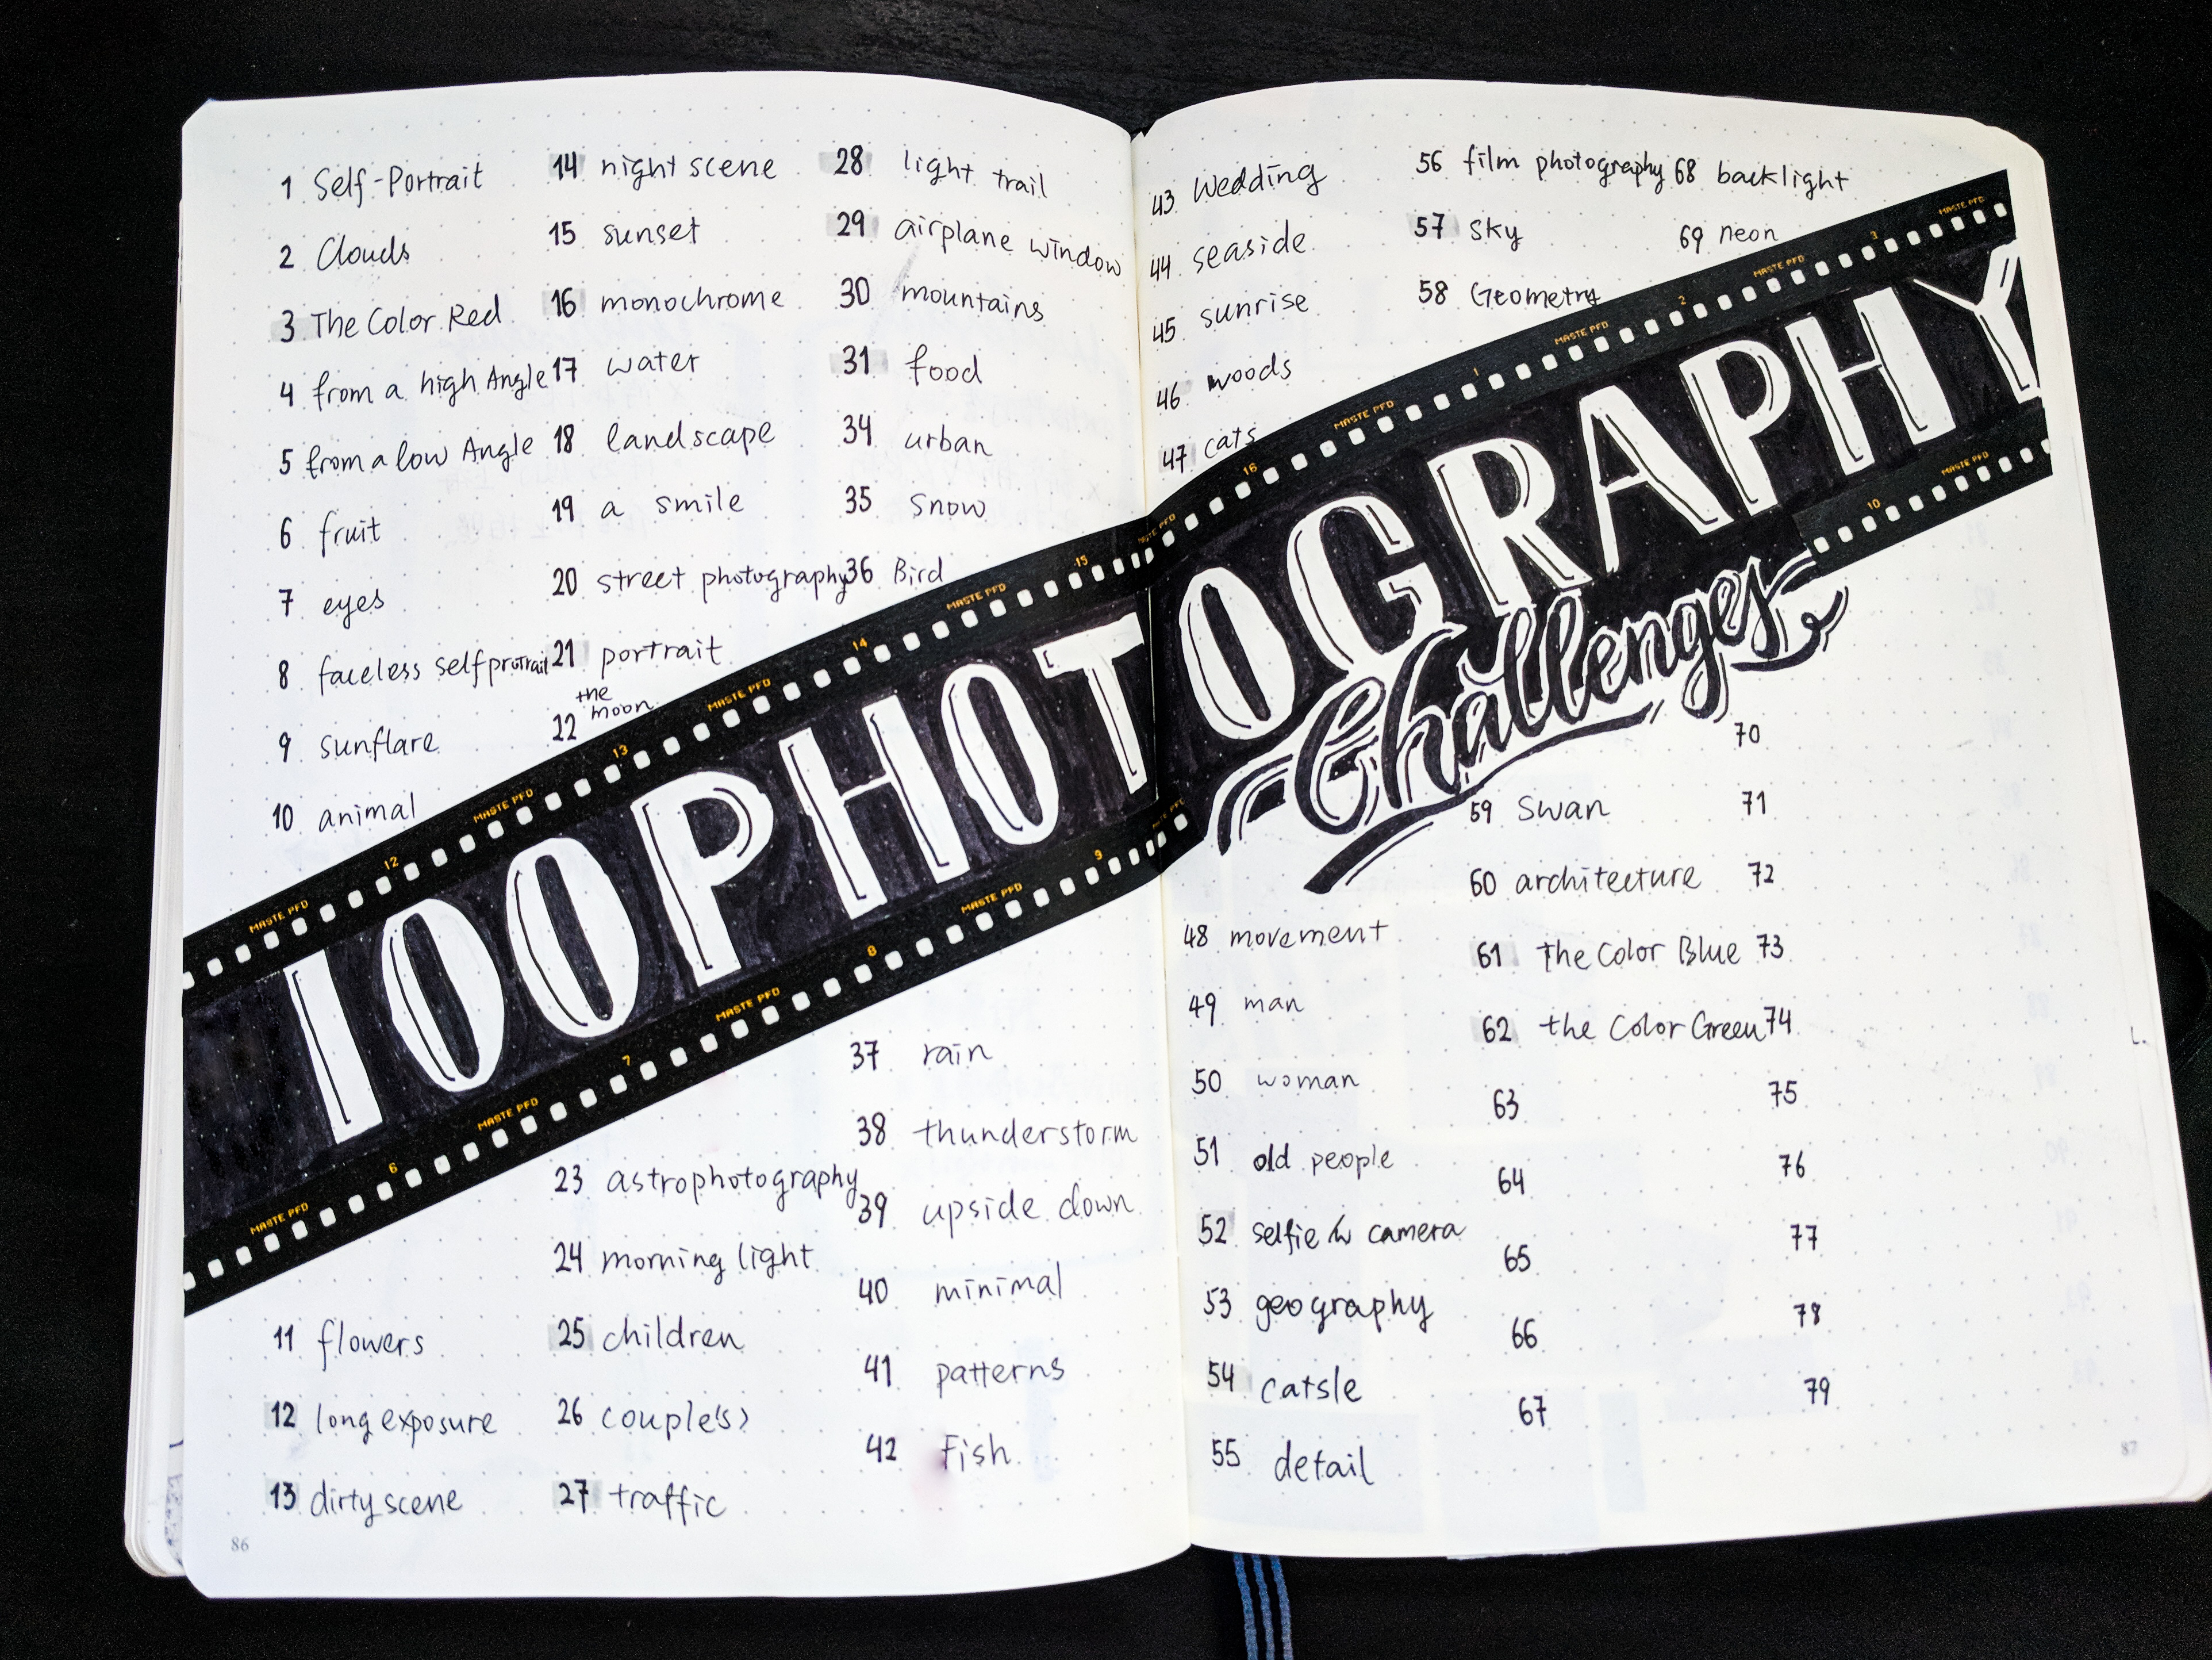 1 Self-Portrait
2 Clouds
3 The Color Red
4 from a high Angle
5 from a low Angle
6 fruit
7 eyes
8 faceless selfprotrait
9 sunflare
10 animal
14 night scene
15 sunset
16 monochrome
17 water
18 landscape
19 a smile
20 street photography
21 portrait
22 the moon
28 light trail
29 airplane window
30 mountains
31 food
34 urban
35 snow
36 Bird
100 PHOTOGRAPHY
Challenges
MASTE PFD 12 MASTE PFD 13 MASTE PFD 14 MASTE PFD 15 MASTE PFD 16 MASTE PFD 1 MASTE PFD 2 MASTE PFD 3 MASTE PFD
MASTE PFD 6 MASTE PFD 7 MASTE PFD 8 MASTE PFD 9 10 MASTE PFD
11 flowers
12 long exposure
13 dirty scene
23 astrophotography
24 morning light
25 children
26 couple(s)
27 traffic
37 rain
38 thunderstorm
39 upside down
40 minimal
41 patterns
42 Fish
86
43 Wedding
44 seaside
45 sunrise
46 woods
47 cats
56 film photography
57 sky
58 Geometry
68 backlight
69 neon
48 movement
49 man
50 woman
51 old people
52 selfie w camera
53 geography
54 catsle
55 detail
59 Swan
60 architecture
61 The Color Blue
62 the Color Green
63
64
65
66
67
70
71
72
73
74
75
76
77
78
79
87